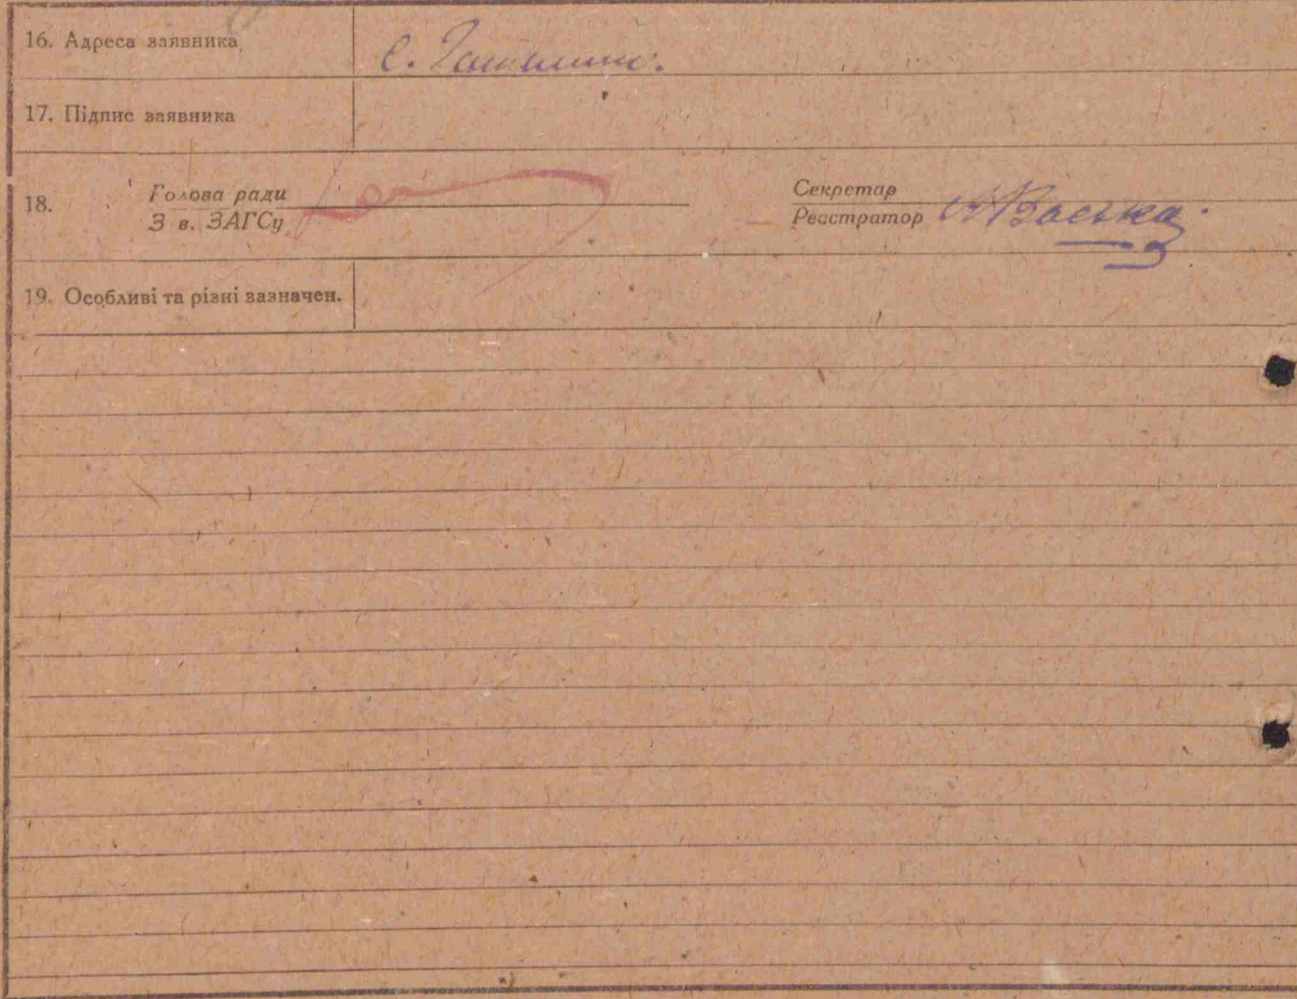 16. Адреса заявника с.
17. Підпис заявника
18. Голова ради
З в. ЗАГСу
Секретар
Реєстратор
19. Особливі та різні зазначен.